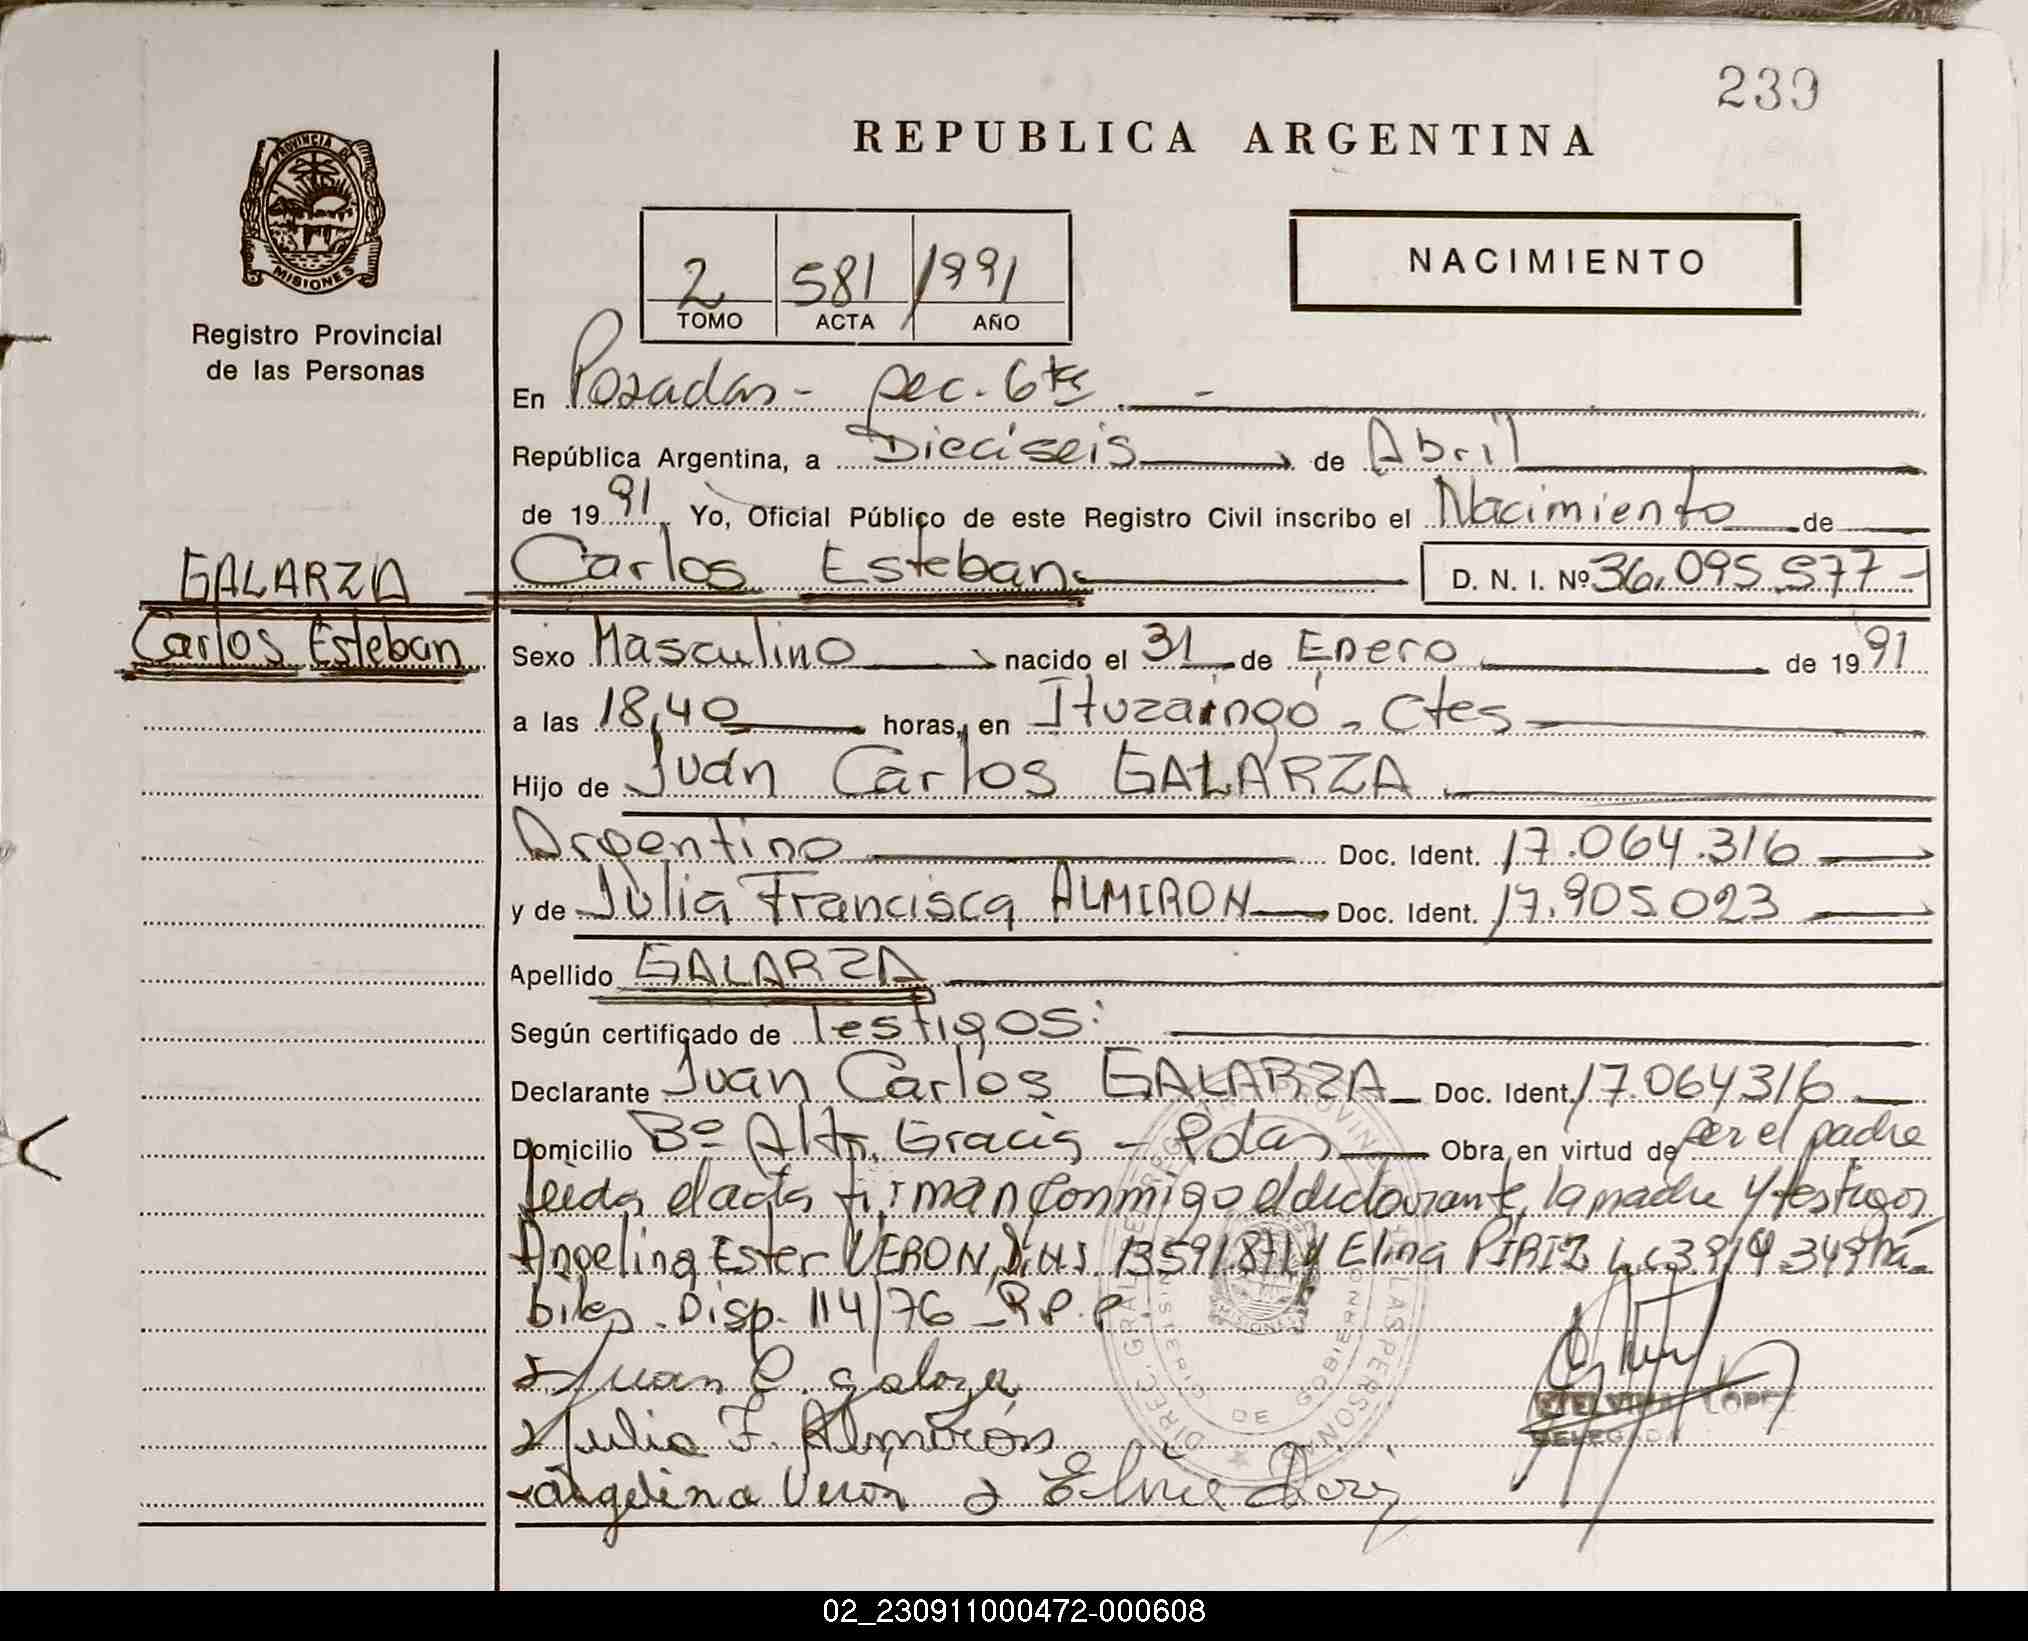 239
REPUBLICA ARGENTINA
PROVINCIA DE
MISIONES
Registro Provincial
de las Personas
2 581 1991
TOMO ACTA AÑO
NACIMIENTO
En Posadas - sec. 6ta -
República Argentina, a Dieciseis de Abril
de 1991 Yo, Oficial Público de este Registro Civil inscribo el Nacimiento de
GALARZA
Carlos Esteban
Carlos Esteban D. N. I. Nº 36.095.977-
Sexo Masculino nacido el 31 de Enero de 1991
a las 18,40 horas, en Ituzaingó - Ctes
Hijo de Juan Carlos GALARZA
Argentino Doc. Ident. 17.064.316
y de Julia Francisca ALMIRON Doc. Ident. 17.905023
Apellido GALARZA
Según certificado de Testigos:
Declarante Juan Carlos GALARZA Doc. Ident. 17.064316
Domicilio Bº Alta Gracia - Pdas Obra en virtud de ser el padre
leida el acta firman conmigo el declarante, la madre y testigos
Angelina Ester VERON, D.N.I. y Elina PIRIZ há-
biles. Disp. 114/76 - R.P.P
Juan C. galarza
Julia F. Almirón
angelina Veron
LOPEZ
DELEGADA
02_230911000472-000608